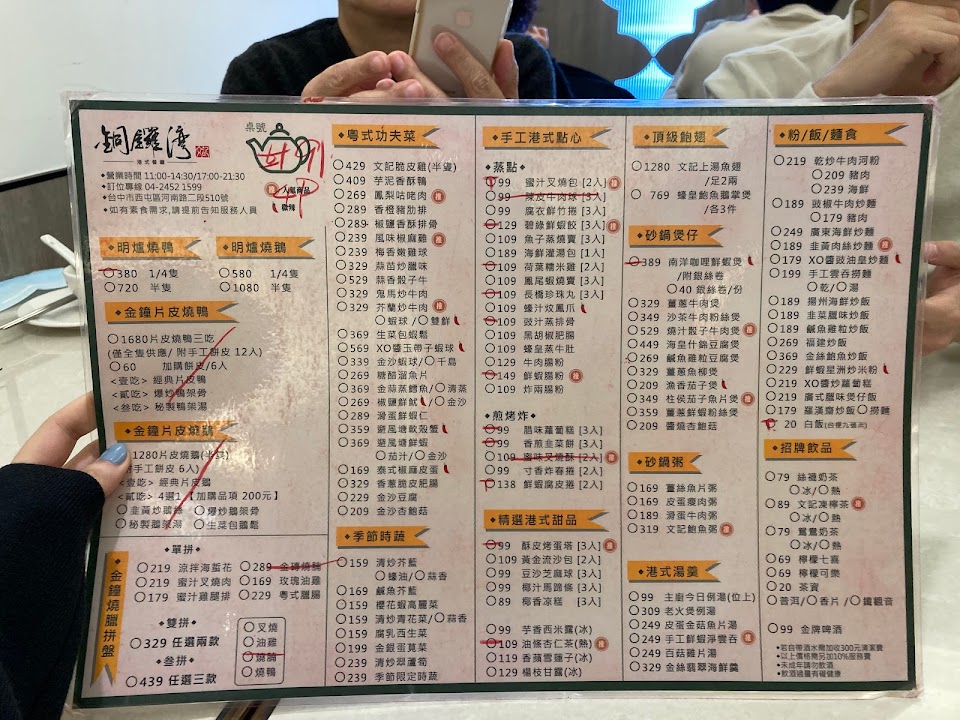 銅鑼灣
港式餐廳
桌號
人氣商品
微辣
◆營業時間 11:00-14:30/17:00-21:30
◆訂位專線 04-2452 1599
◆台中市西屯區河南路二段510號
◆如有素食需求,請提前告知服務人員
◆明爐燒鴨◆
380 1/4隻
720 半隻
◆明爐燒鵝◆
580 1/4隻
1080 半隻
◆金鐘片皮燒鴨◆
1680片皮燒鴨三吃
(僅全隻供應/ 附手工餅皮 12人)
60 加購餅皮/6人
<壹吃> 經典片皮鴨
<貳吃> 爆炒鴨架骨
<叁吃> 秘製鴨架湯
◆金鐘片皮燒鵝◆
1280片皮燒鵝(半隻)
附手工餅皮 6人)
<壹吃> 經典片皮鵝
<貳吃> 4選1【加購品項 200元】
韭黃炒鵝絲 爆炒鵝架骨
秘製鵝架湯 生菜包鵝鬆
◆金鐘燒臘拼盤
◆單拼◆
219 涼拌海蜇花
219 蜜汁叉燒肉
179 蜜汁雞腿排
289
169 玫瑰油雞
229 粵式臘腸
◆雙拼◆
329 任選兩款
◆叁拼◆
439 任選三款
叉燒
油雞
燒腩
燒鴨
◆粵式功夫菜
429 文記脆皮雞(半隻)
409 芋泥香酥鴨
269 鳳梨咕咾肉 推
289 香橙豬肋排
289 椒鹽香酥排骨
239 風味椒麻雞 推
239 梅香嫩雞球
329 蒜苗炒臘味
529 蒜香骰子牛
329 鬼馬炒牛肉
329 芥蘭炒牛肉 推
蝦球 / 雙鮮
369 生菜包蝦鬆
569 XO醬玉帶子蝦球
339 金沙蝦球/ 千島
269 糖醋溜魚片
369 金蒜蒸鱈魚/ 清蒸
269 椒鹽鮮魷 / 金沙
289 滑蛋蝦仁
359 避風塘軟殼蟹
369 避風塘鮮蝦
茄汁/ 金沙
169 泰式椒麻皮蛋
329 香蔥脆皮肥腸
229 金沙豆腐
209 金沙杏鮑菇
◆季節時蔬
159 清炒芥藍
蠔油/ 蒜香
169 鹹魚芥藍
159 櫻花蝦高麗菜
159 清炒青花菜/ 蒜香
159 腐乳西生菜
199 金銀蛋莧菜
239 清炒翠蘆筍
239 季節限定時蔬
◆手工港式點心
◆蒸點◆
99 蜜汁叉燒包 [2入] 推
99 陳皮牛肉球 [3入]
99 腐衣鮮竹捲 [3入]
129 碧綠鮮蝦餃 [3入] 推
109 魚子蒸燒賣 [3入]
189 海鮮灌湯包 [1入]
109 荷葉糯米雞 [2入]
109 鳳尾蝦燒賣 [3入]
109 長橋珍珠丸 [3入]
109 蠔汁炆鳳爪
109 豉汁蒸排骨
109 黑胡椒肥腸
109 蠔皇蒸牛肚
129 牛肉腸粉
149 鮮蝦腸粉 推
109 炸兩腸粉
◆煎烤炸◆
99 腊味蘿蔔糕 [3入]
99 香煎韭菜餅 [3入]
109 蜜味叉燒酥 [2入] 推
99 寸香炸春捲 [3入]
138 鮮蝦腐皮捲 [2入]
◆精選港式甜品
99 酥皮烤蛋塔 [3入] 推
109 黃金流沙包 [2入]
99 豆沙芝麻球 [3入]
99 椰汁馬蹄條 [3入]
89 椰香凉糕 [3入]
99 芋香西米露(冰)
109 油條杏仁茶(熱) 推
119 香蘋雪蓮子(冰)
129 楊枝甘露(冰)
◆頂級鮑翅
1280 文記上湯魚翅
/足2兩
769 蠔皇鮑魚鵝掌煲
/各3件
◆砂鍋煲仔
389 南洋咖哩鮮蝦煲 推
/附銀絲卷
40 銀絲卷/份
329 薑蔥牛肉煲
349 沙茶牛肉粉絲煲
529 燒汁骰子牛肉煲 推
449 海皇什錦豆腐煲
269 鹹魚雞粒豆腐煲
329 薑蔥魚柳煲
209 魚香茄子煲
349 柱侯茄子魚片煲 推
359 薑蔥鮮蝦粉絲煲
209 醬燒杏鮑菇
◆砂鍋粥
169 薑絲魚片粥
169 皮蛋瘦肉粥
189 滑蛋牛肉粥
319 文記鮑魚粥 推
◆港式湯羹
99 主廚今日例湯(位上)
309 老火煲例湯
249 皮蛋金菇魚片湯
249 手工鮮蝦淨雲吞 推
249 百菇雞片湯
329 金絲翡翠海鮮羹
◆粉/飯/麵食
219 乾炒牛肉河粉
209 豬肉
239 海鮮
189 豉椒牛肉炒麵
179 豬肉
249 廣東海鮮炒麵
189 韭黃肉絲炒麵 推
179 XO醬豉油皇炒麵
199 手工雲吞撈麵
乾/ 湯
189 揚州海鮮炒飯
189 韭菜臘味炒飯
189 鹹魚雞粒炒飯
269 福建炒飯
369 金絲鮑魚炒飯
229 鮮蝦星洲炒米粉
219 XO醬炒蘿蔔糕
219 廣式臘味煲仔飯
179 羅漢齋炒飯 撈麵
20 白飯(台梗九號米)
◆招牌飲品
79 絲襪奶茶
冰/ 熱
89 文記凍檸茶 推
冰/ 熱
79 鴛鴦奶茶
冰/ 熱
69 檸檬七喜
69 檸檬可樂
20 茶資
普洱/ 香片/ 鐵觀音
99 金牌啤酒
◆若自帶酒水需加收300元清潔費
◆以上價格需另加10%服務費
◆未成年請勿飲酒
◆飲酒過量有礙健康